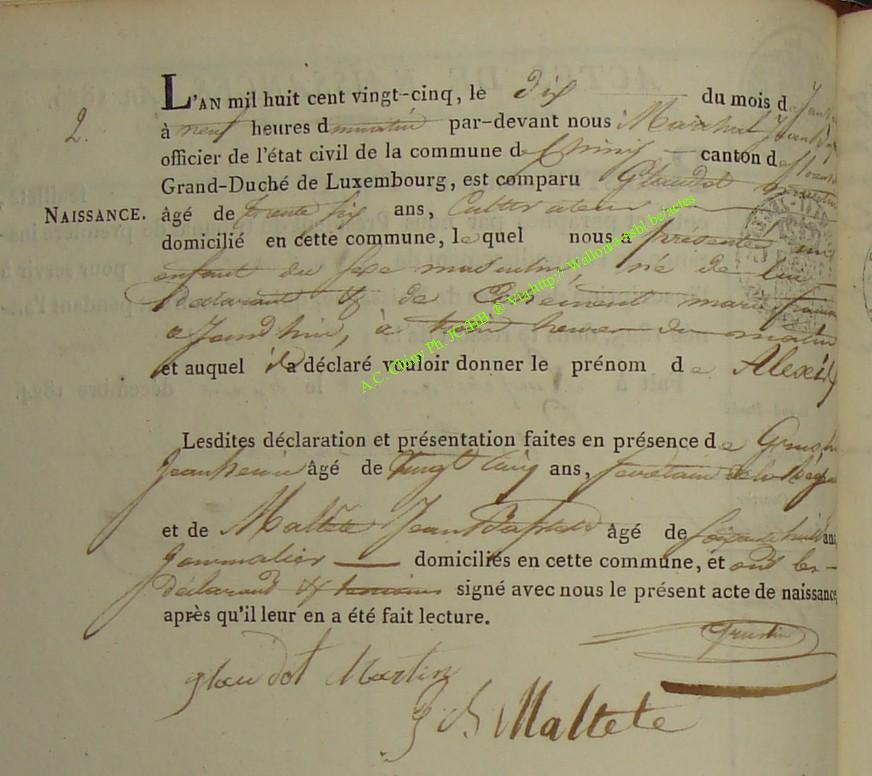 L'AN mil huit cent vingt-cinq, le Dix du mois de
2. à neuf heures du matin par-devant nous Maréchal
officier de l'état civil de la commune de Chiny canton de
Grand-Duché de Luxembourg, est comparu Glaudot Martin
NAISSANCE. âgé de trente six ans, Cultivateur
domicilié en cette commune, lequel nous a présenté un
enfant du sexe masculin, né de lui
Déclarant & de marie
à trois heures du matin
et auquel il a déclaré vouloir donner le prénom de Alexis
Lesdites déclaration et présentation faites en présence de
âgé de vingt cinq ans,
et de Maltète Jean Baptiste âgé de soixante huit ans
Journalier domiciliés en cette commune, et ont les
déclarant & témoins signé avec nous le présent acte de naissance
après qu'il leur en a été fait lecture.
Grustin
Glaudot Martin
J Maltete
A.C. Chiny Ph. JC HB ® Via http://walloniaasbl.be/actes